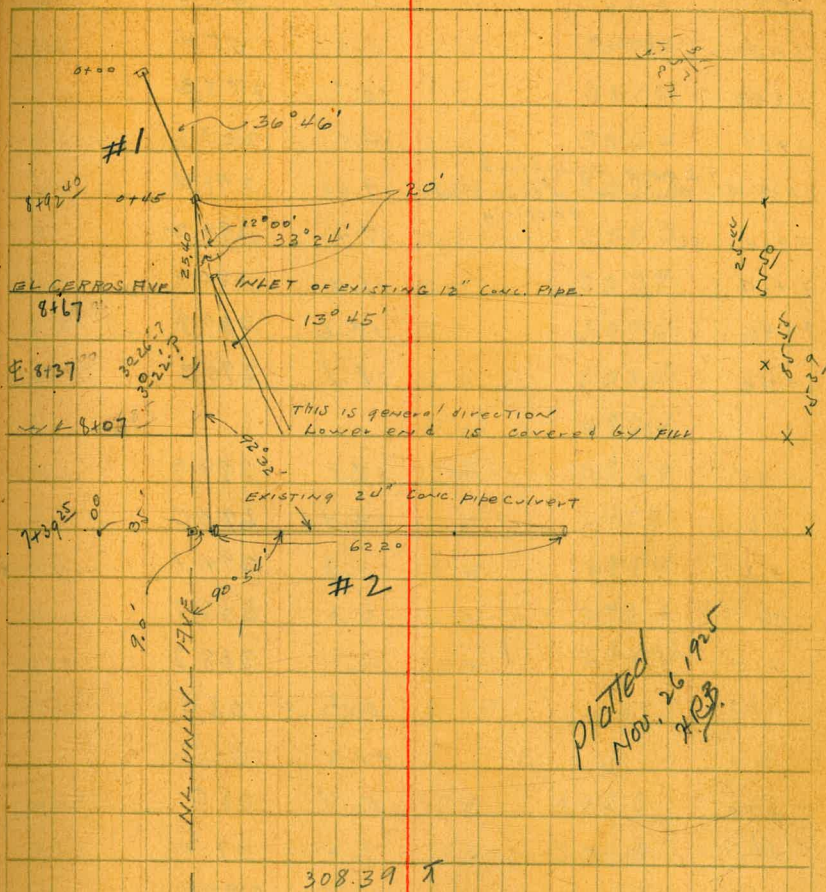 0+00
36°46'
#1
8+92⁴⁰
0+45
20'
12°00'
33°24'
25.40'
EL CERROS AVE
INLET OF EXISTING 12" CONC. PIPE.
8+67
13°45'
℄ 8+37
THIS IS general direction
8+07
Lower end is covered by FILL
92°32'
EXISTING 24" CONC. pipe culvert
7+39²⁵
62.20
90°54'
#2
9.0'
AVE
Plotted
Nov. 26, 1925
H.R.B.
308.39 π